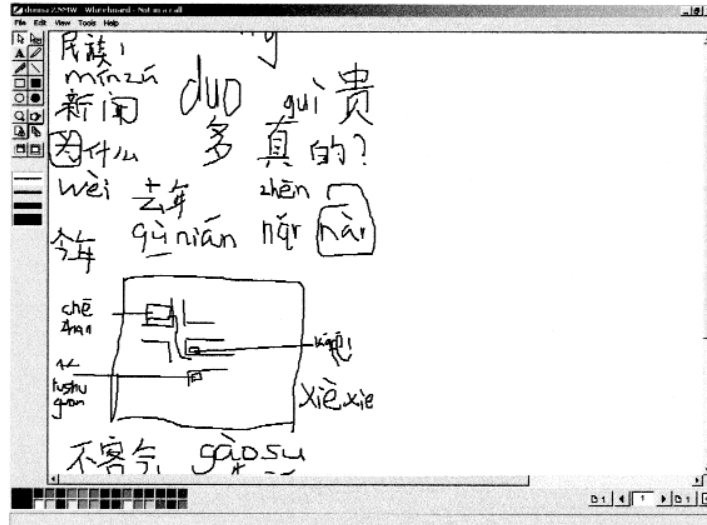 donna2.NMW - Whiteboard - Not in a call
File Edit View Tools Help
民族
mínzú
新闻 duo guì 贵
为什么 多 真的?
wèi 去年 zhēn
今年 qùnián nǎr nàr
chē
zhan
tushu
guan
xièxie
不客气 gàosu
1